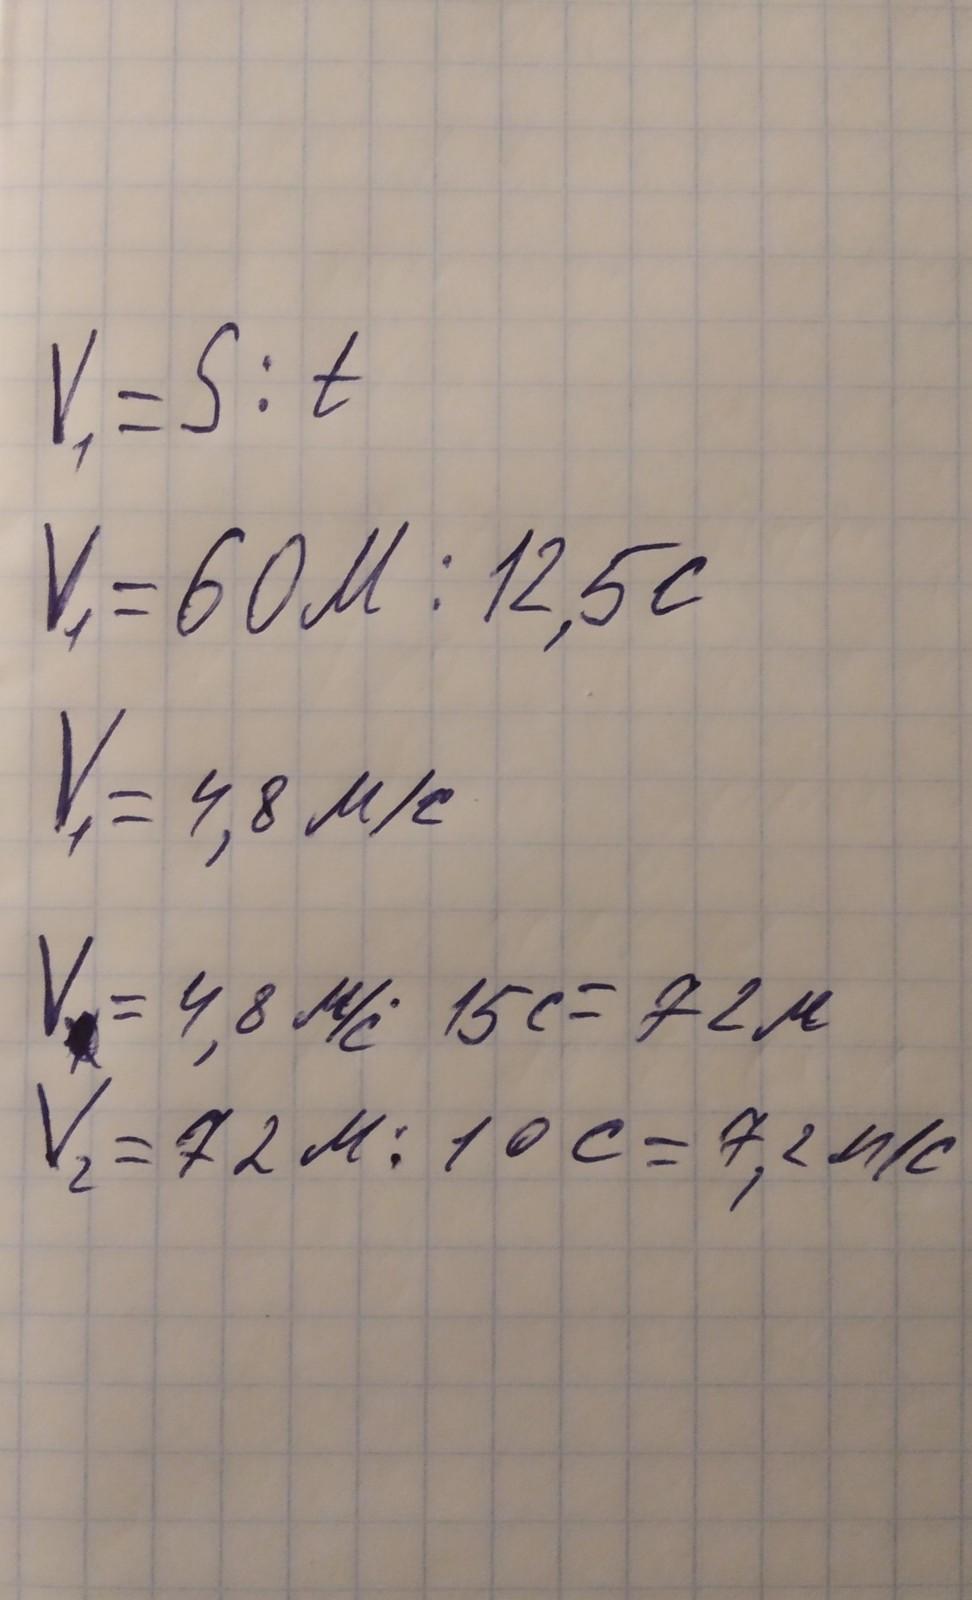 V₁ = S : t
V₁ = 60 м : 12,5 с
V₁ = 4,8 м/с
V = 4,8 м/с · 15 с = 72 м
V₂ = 72 м : 10 с = 7,2 м/с